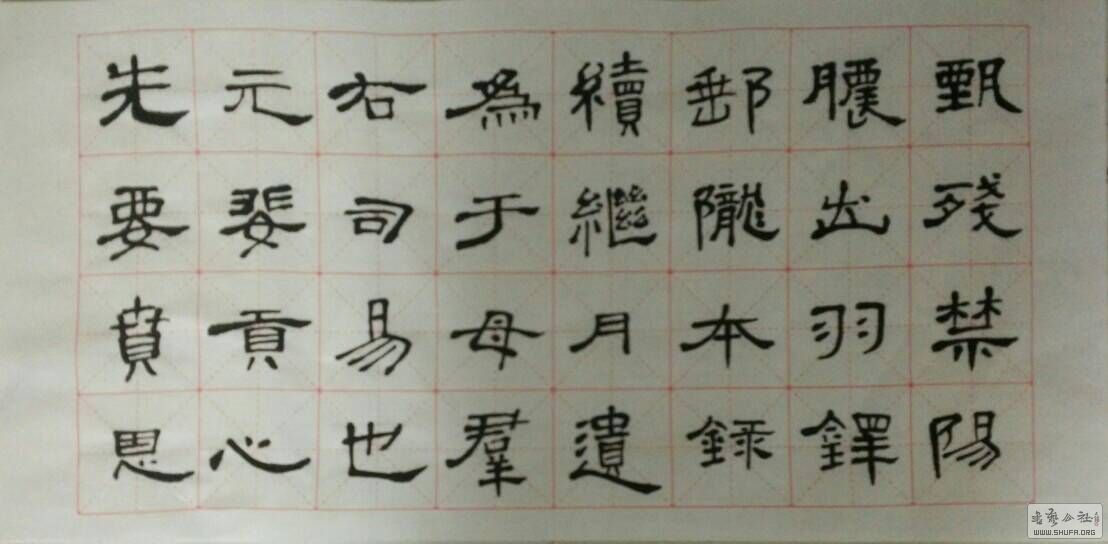 甄殘禁陽
臞出羽鐸
郵隴本録
續繼月遺
為于母羣
右司易也
元婓貢心
先要賁恩
書藝公社
WWW.SHUFA.ORG